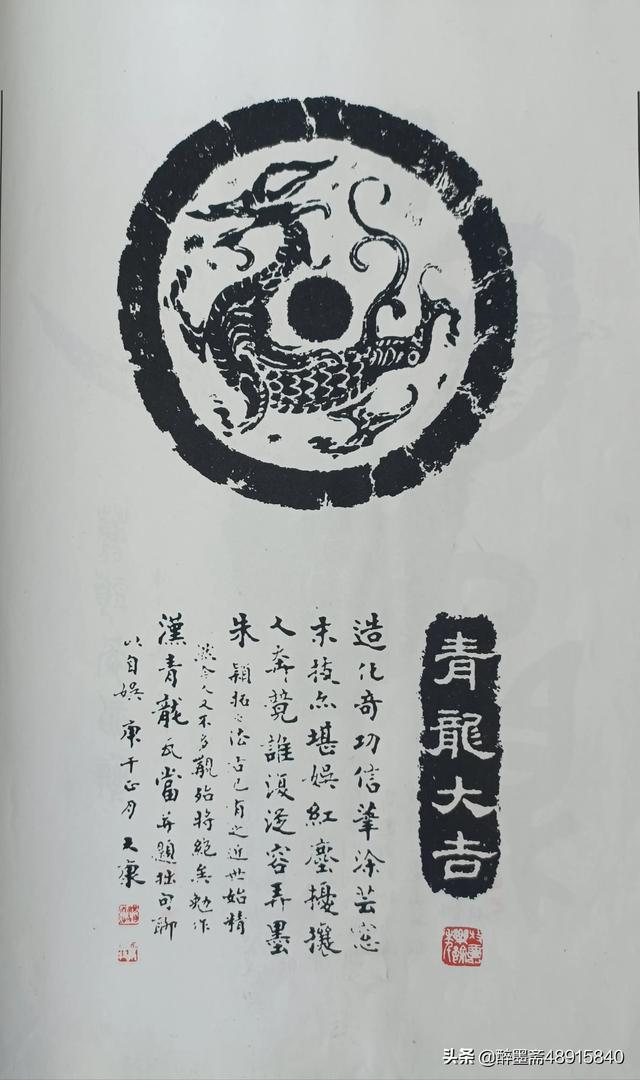 青龍大吉
造化奇功信筆涂芸窓
末技亦堪娛紅塵擾攘
人奔競誰復從容弄墨
朱 穎拓之法古已有之近世始精
然今人又不多觀殆將絕矣勉作
漢青龍瓦當并題拙句聊
以自娛 庚午正月 大康
头条 @醉墨斋48915840